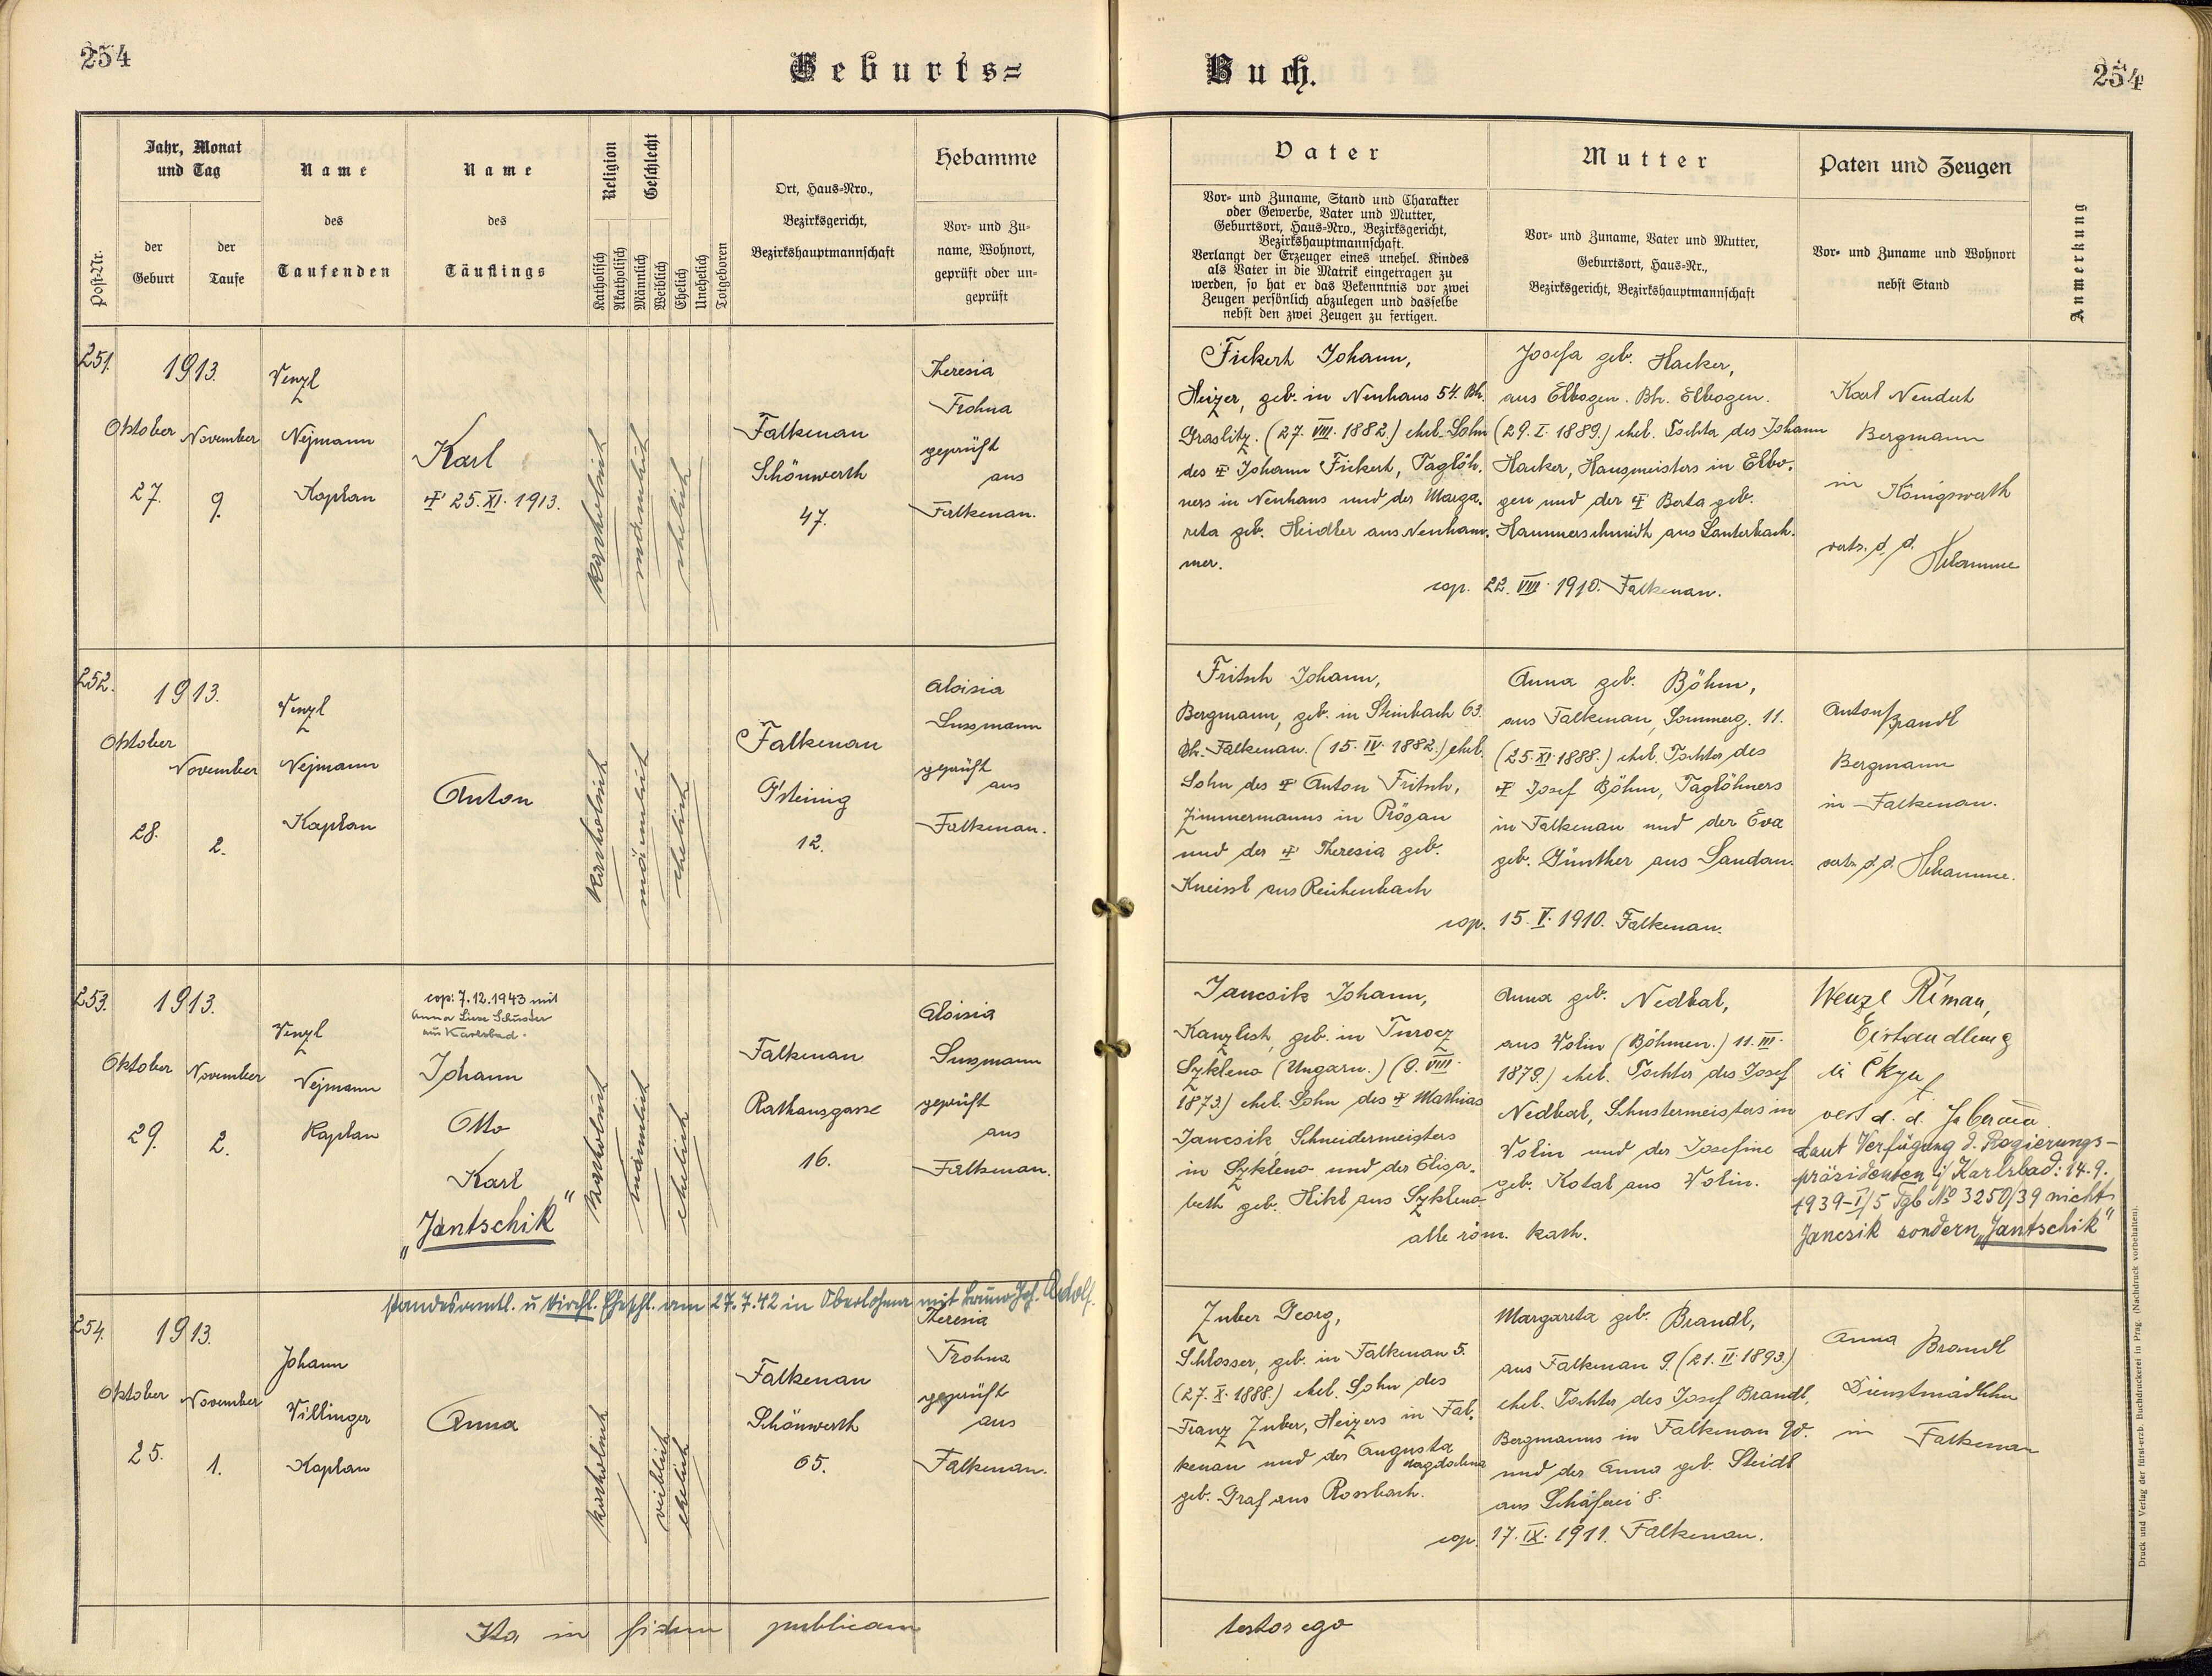 254
Geburts=
Buch.
254
Post-Nr.
Jahr, Monat
und Tag
der
Geburt
der
Taufe
Name
des
Taufenden
Name
des
Täuflings
Religion
Katholisch
Akatholisch
Geschlecht
Männlich
Weiblich
Ehelich
Unehelich
Totgeboren
Ort, Haus-Nro.,
Bezirksgericht,
Bezirkshauptmannschaft
Hebamme
Vor- und Zu-
name, Wohnort,
geprüft oder un-
geprüft
Vater
Vor- und Zuname, Stand und Charakter
oder Gewerbe, Vater und Mutter,
Geburtsort, Haus-Nro., Bezirksgericht,
Bezirkshauptmannschaft.
Verlangt der Erzeuger eines unehel. Kindes
als Vater in die Matrik eingetragen zu
werden, so hat er das Bekenntnis vor zwei
Zeugen persönlich abzulegen und dasselbe
nebst den zwei Zeugen zu fertigen.
Mutter
Vor- und Zuname, Vater und Mutter,
Geburtsort, Haus-Nr.,
Bezirksgericht, Bezirkshauptmannschaft
Paten und Zeugen
Vor- und Zuname und Wohnort
nebst Stand
Anmerkung
251.
1913.
Oktober
27.
November
9.
Venzl
Nejmann
Kaplan
Karl
✝ 25. XI. 1913.
katholisch
männlich
ehelich
Falkenau
Schönwerth
47.
Theresia
Frohna
geprüft
aus
Falkenau.
Fickert Johann,
Heizer, geb. in Neuhaus 54. Bh.
Graslitz. (27. VIII. 1882.) ehel. Sohn
des ✝ Johann Fickert, Taglöh-
ners in Neuhaus und der Marga-
reta geb. Heidler aus Neuham-
mer.
Josefa geb. Hacker,
aus Elbogen. Bh. Elbogen.
(29. I. 1889.) ehel. Tochter des Johann
Hacker, Hausmeisters in Elbo-
gen und der ✝ Berta geb.
Hammerschmidt aus Lauterbach.
cop. 22. VIII. 1910. Falkenau.
Karl
Bergmann
in
Königswerth
vertr. d. d.
Hebamme
252.
1913.
Oktober
28.
November
2.
Venzl
Nejmann
Kaplan
Anton
katholisch
männlich
ehelich
Falkenau
G'steinig
12.
Aloisia
Sussmann
geprüft
aus
Falkenau.
Fritsch Johann,
Bergmann, geb. in Steinbach 63.
Bh. Falkenau. (15. IV. 1882.) ehel.
Sohn des ✝ Anton Fritsch,
Zimmermanns in Prösau
und der ✝ Theresia geb.
Kneissl aus Reichenbach
Anna geb. Böhm,
aus Falkenau, Sommerg. 11.
(25. XI. 1888.) ehel. Tochter des
✝ Josef Böhm, Taglöhners
in Falkenau und der Eva
geb. Günther aus Sandau.
cop. 15. V. 1910. Falkenau.
Anton Brandl
Bergmann
in Falkenau.
vertr. d. d. Hebamme.
253.
1913.
Oktober
29.
November
2.
Venzl
Nejmann
Kaplan
cop: 7.12.1943 mit
Anna Liese Schuster
aus Karlsbad.
Johann
Otto
Karl
„Jantschik“
katholisch
männlich
ehelich
Falkenau
Rathausgasse
16.
Aloisia
Sussmann
geprüft
aus
Falkenau.
Jancsik Johann,
Kanzlist, geb. in Turocz
Szkleno (Ungarn.) (9. VIII.
1873.) ehel. Sohn des ✝ Mathias
Jancsik, Schneidermeisters
in Szkleno und der Elisa-
beth geb. Hikl aus Szkleno.
Anna geb. Nedbal,
aus Volin (Böhmen.) 11. III.
1879.) ehel. Tochter des Josef
Nedbal, Schustermeisters in
Volin und der Josefine
geb. Kotal aus Volin.
alle röm. kath.
Wenzl Řiman,
Eierhandlung
in Čkyn
vert. d. d. Hebamme
Laut Verfügung d. Regierungs-
präsidenten i/ Karlsbad: 14.9.
1939-I/5 Tgb No 3250/39 nicht
Jancsik sondern „Jantschik“
standesamtl. u kirchl. Eheschl. am 27.7.42 in Oberlohma mit Bruno Joh. Adolf.
254.
1913.
Oktober
25.
November
1.
Johann
Villinger
Kaplan
Anna
katholisch
weiblich
ehelich
Falkenau
Schönwerth
65.
Theresia
Frohna
geprüft
aus
Falkenau.
Zuber Georg,
Schlosser, geb. in Falkenau 5.
(27. X. 1888.) ehel. Sohn des
Franz Zuber, Heizers in Fal-
kenau und der Augusta
Magdalena
geb. Graf aus Rossbach.
Margareta geb. Brandl,
aus Falkenau 9. (21. II. 1893.)
ehel. Tochter des Josef Brandl,
Bergmanns in Falkenau 90.
und der Anna geb. Steidl
aus Schäferei 8.
cop. 17. IX. 1911. Falkenau.
Anna Brandl
Dienstmädchen
in Falkenau
Ita in fidem publicam
testor ego
Druck und Verlag der fürst-erzb. Buchdruckerei in Prag. (Nachdruck vorbehalten).